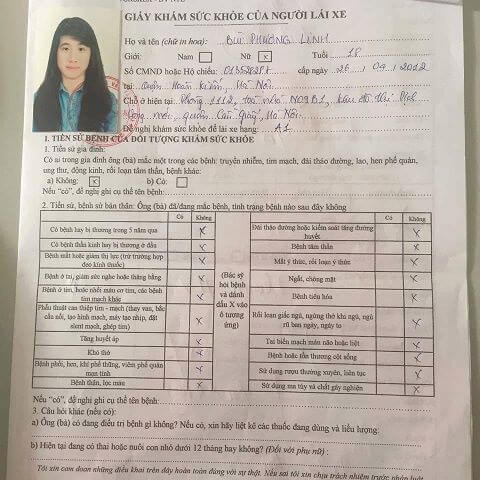 GIẤY KHÁM SỨC KHỎE CỦA NGƯỜI LÁI XE
Họ và tên (chữ in hoa): BÙI PHƯƠNG LINH
Giới: Nam Nữ x Tuổi 18
Số CMND hoặc Hộ chiếu: cấp ngày 26 / 04 / 2012
tại Quận Hoàn Kiếm, Hà Nội
Chỗ ở hiện tại: Phòng 1112, toà nhà N09B1, khu đô thị Dịch
Vọng mới, quận Cầu Giấy, Hà Nội
Đề nghị khám sức khỏe để lái xe hạng: A1
I. TIỀN SỬ BỆNH CỦA ĐỐI TƯỢNG KHÁM SỨC KHỎE
1. Tiền sử gia đình:
Có ai trong gia đình ông (bà) mắc một trong các bệnh: truyền nhiễm, tim mạch, đái tháo đường, lao, hen phế quản,
ung thư, động kinh, rối loạn tâm thần, bệnh khác:
a) Không: x b) Có:
Nếu "có", đề nghị ghi cụ thể tên bệnh:
2. Tiền sử, bệnh sử bản thân: Ông (bà) đã/đang mắc bệnh, tình trạng bệnh nào sau đây không
Có Không Có Không
Có bệnh hay bị thương trong 5 năm qua x
Có bệnh thần kinh hay bị thương ở đầu x
Bệnh mắt hoặc giảm thị lực (trừ trường hợp
đeo kính thuốc) x
Bệnh ở tai, giảm sức nghe hoặc thăng bằng x
Bệnh ở tim, hoặc nhồi máu cơ tim, các bệnh
tim mạch khác x
Phẫu thuật can thiệp tim - mạch (thay van, bắc
cầu nối, tạo hình mạch, máy tạo nhịp, đặt
stent mạch, ghép tim) x
Tăng huyết áp x
Khó thở x
Bệnh phổi, hen, khí phế thũng, viêm phế quản
mạn tính x
Bệnh thận, lọc máu x
(Bác sỹ
hỏi bệnh
và đánh
dấu X vào
ô tương
ứng)
Đái tháo đường hoặc kiểm soát tăng đường
huyết x
Bệnh tâm thần x
Mất ý thức, rối loạn ý thức x
Ngất, chóng mặt x
Bệnh tiêu hóa x
Rối loạn giấc ngủ, ngừng thở khi ngủ, ngủ
rũ ban ngày, ngáy to x
Tai biến mạch máu não hoặc liệt x
Bệnh hoặc tổn thương cột sống x
Sử dụng rượu thường xuyên, liên tục x
Sử dụng ma túy và chất gây nghiện x
Nếu "có", đề nghị ghi cụ thể tên bệnh:
3. Câu hỏi khác (nếu có):
a) Ông (bà) có đang điều trị bệnh gì không? Nếu có, xin hãy liệt kê các thuốc đang dùng và liều lượng:
b) Hiện tại đang có thai hoặc nuôi con nhỏ dưới 12 tháng hay không? (Đối với phụ nữ):
Tôi xin cam đoan những điều khai trên đây hoàn toàn đúng với sự thật. Nếu sai tôi xin chịu trách nhiệm trước pháp luật